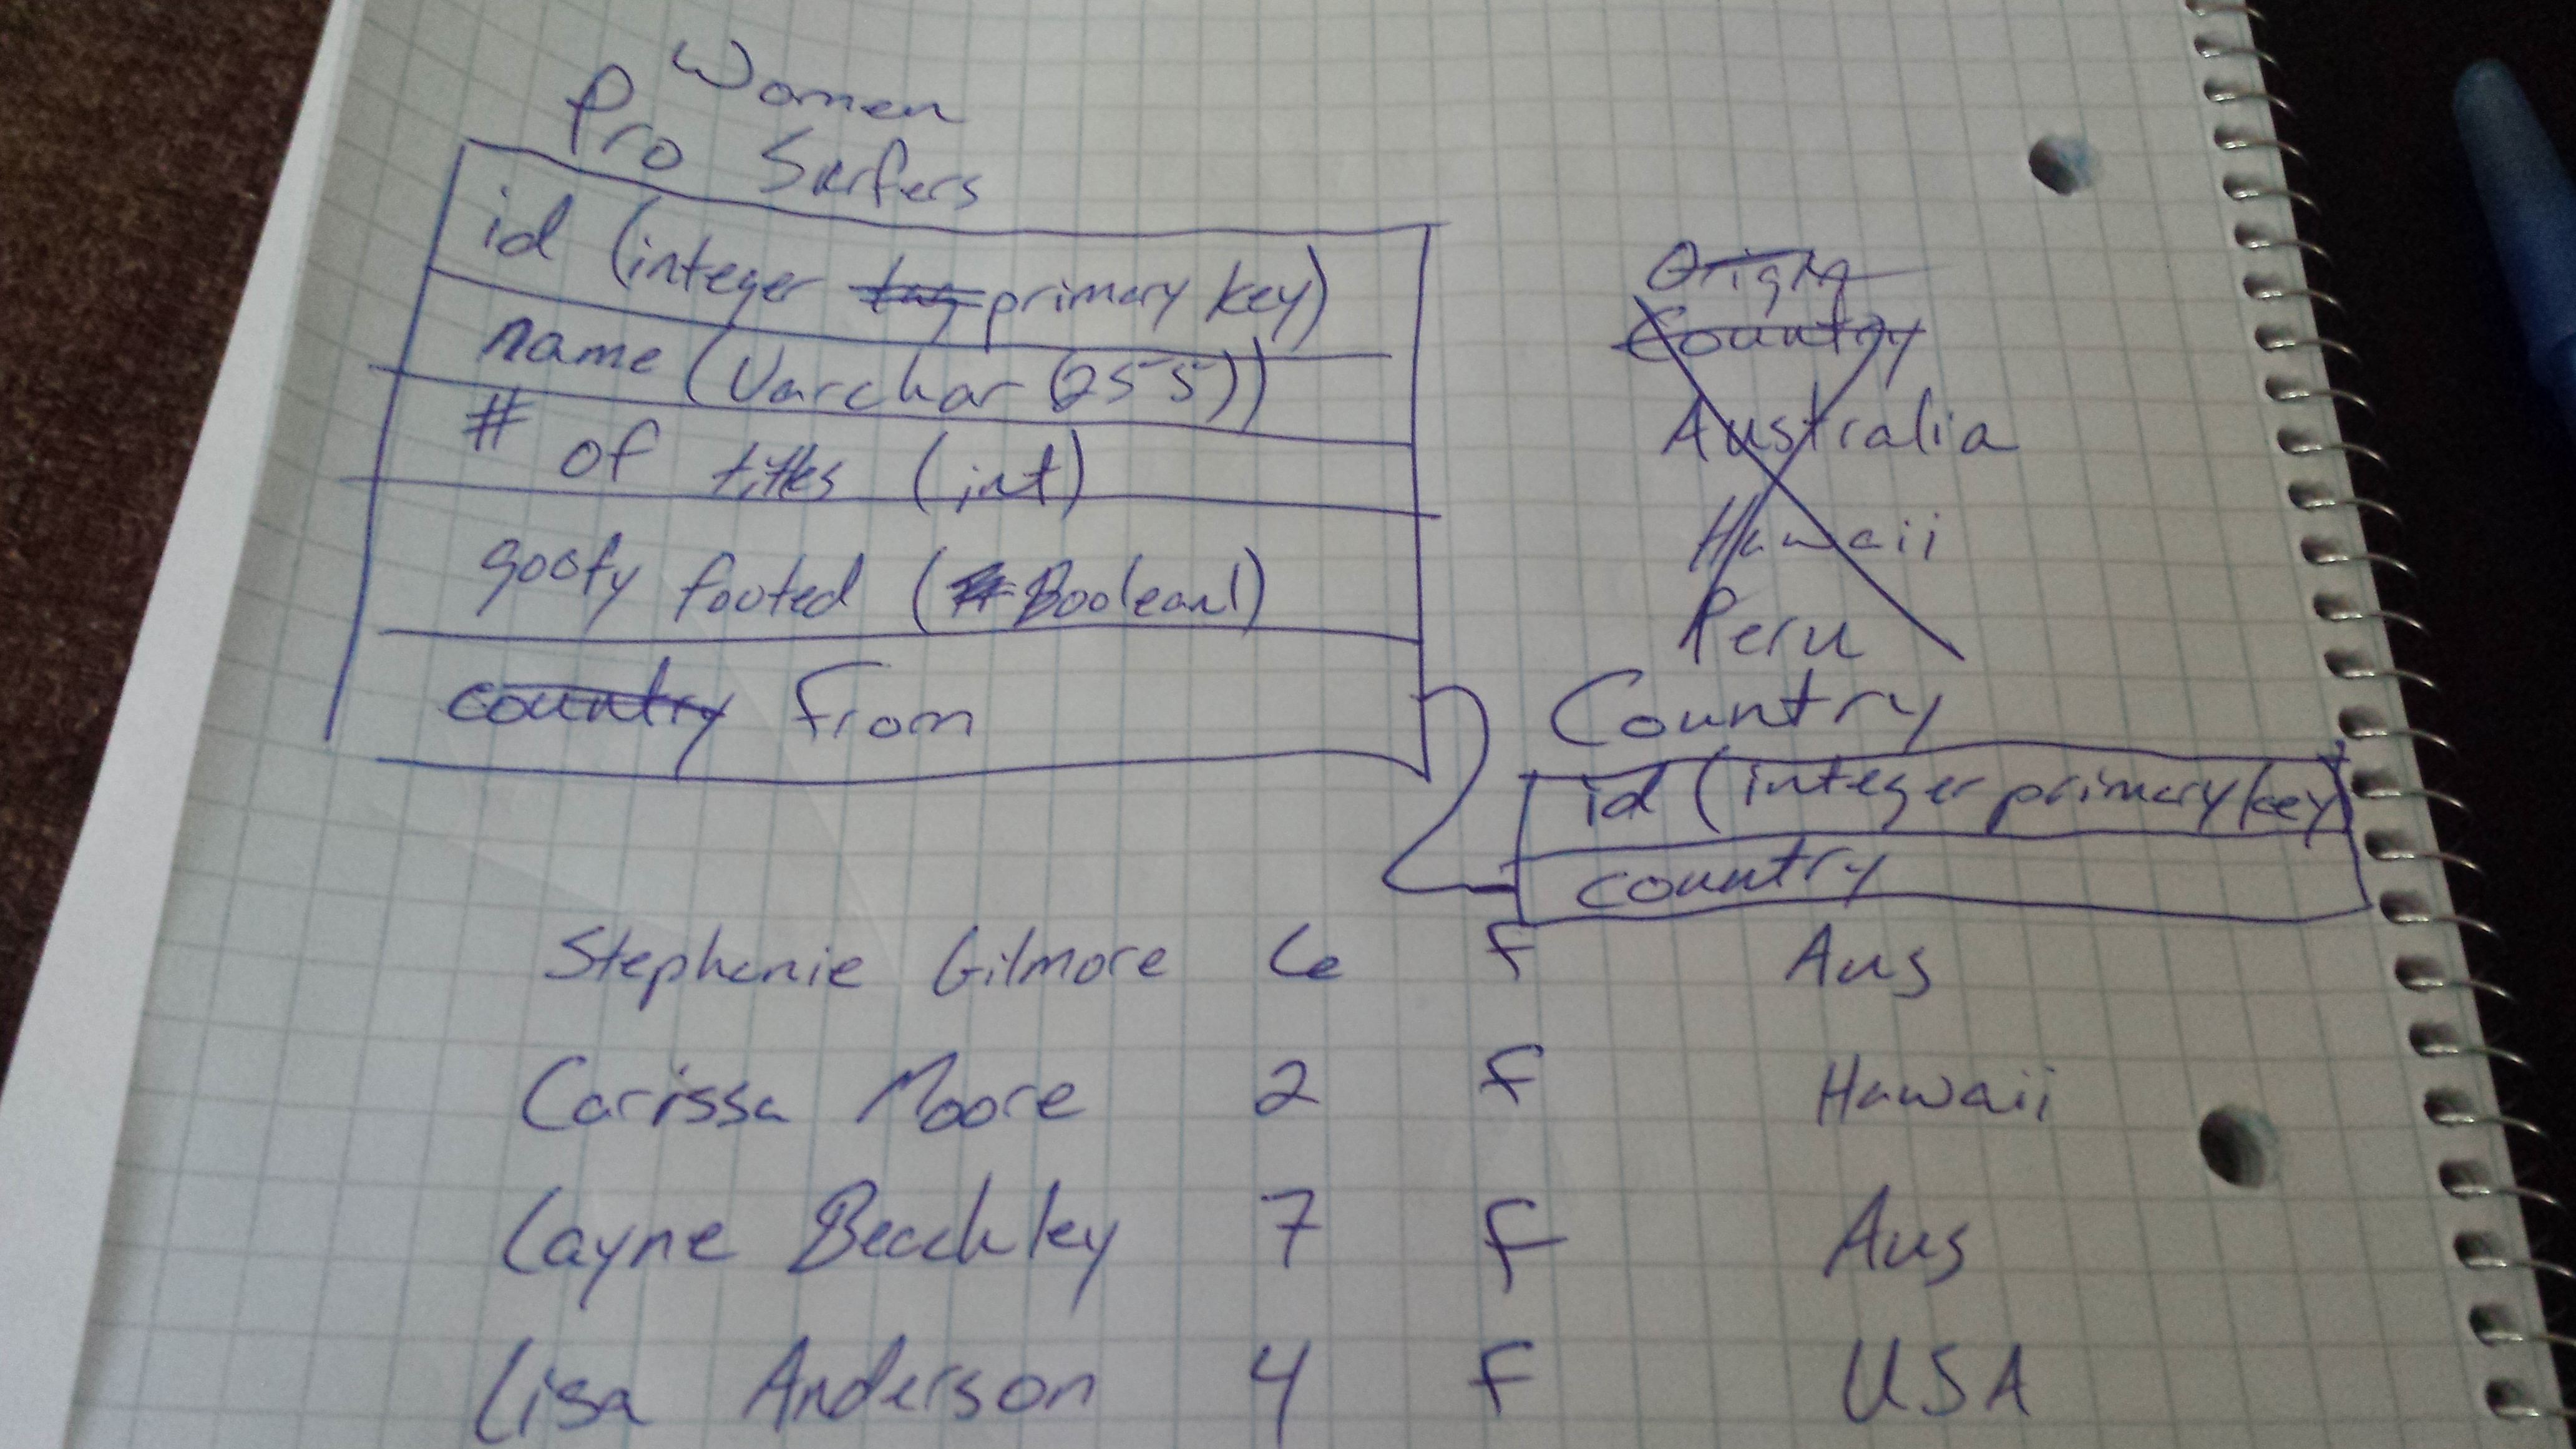 Women
Pro Surfers
id (integer primary key)
name (Varchar (255))
# of titles (int)
goofy footed (Boolean)
country from
Origin
Country
Australia
Hawaii
Peru
Country
id (integer primary key)
country
Stephanie Gilmore 6 F Aus
Carissa Moore 2 F Hawaii
Layne Beachley 7 F Aus
Lisa Anderson 4 F USA